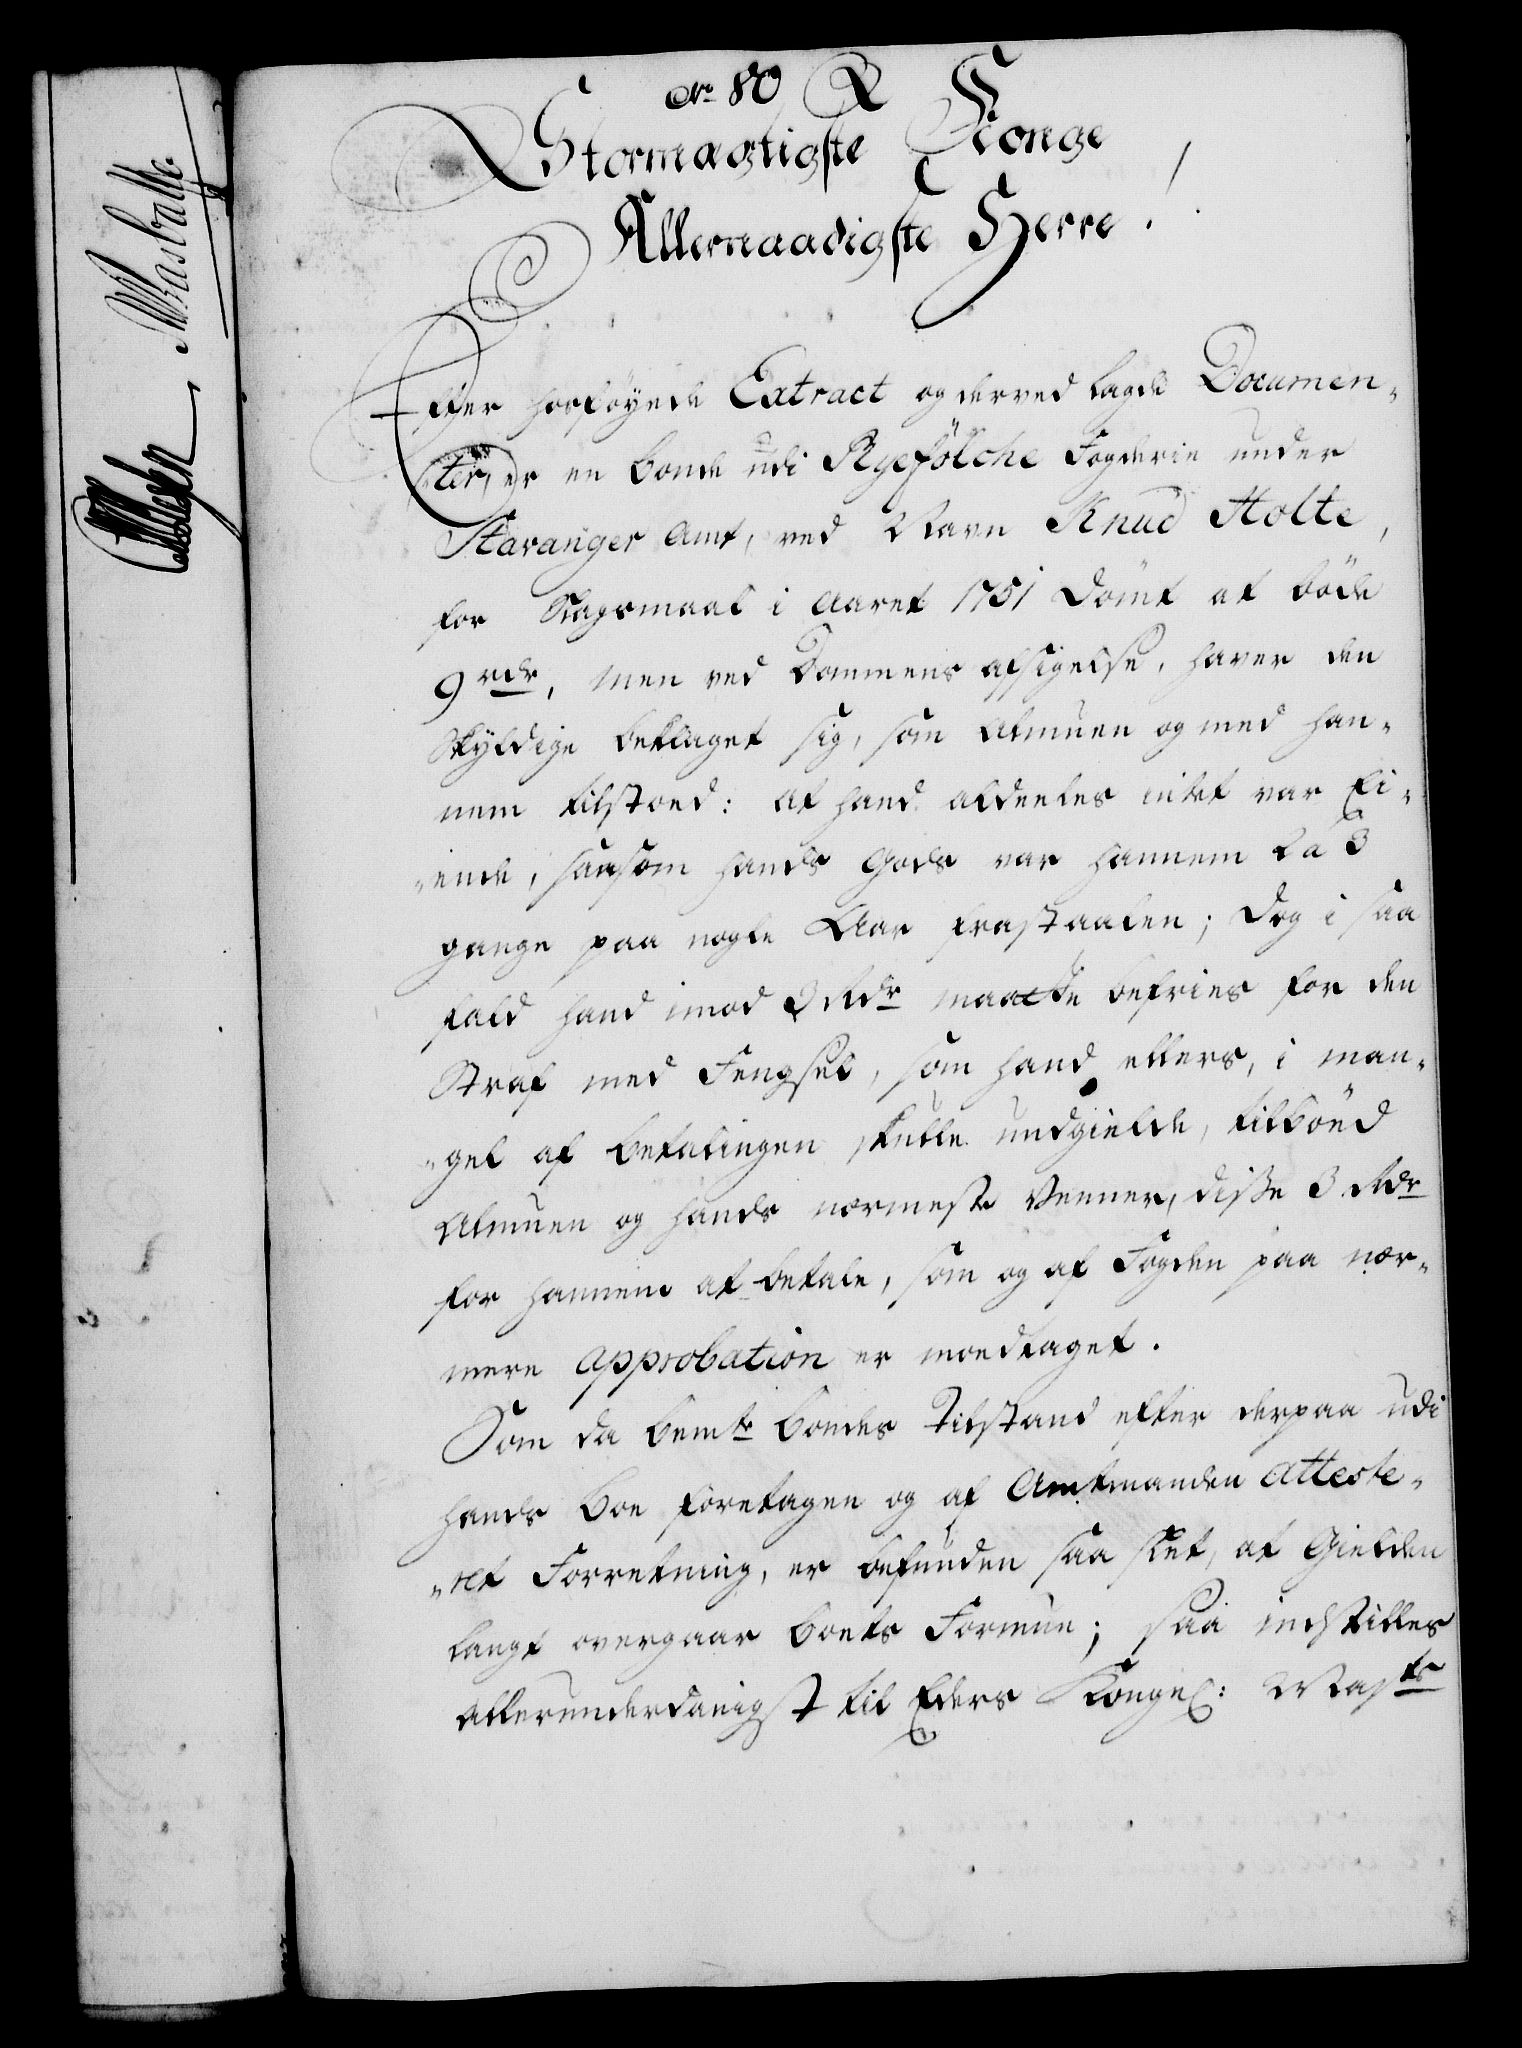 No 80
Stormægtigste Konge
Allernaadigste Herre!
Efter hosføyede Extract og derved lagde Documen-
ter, er en bonde udi Ryefölche Fogderie under
Stavanger Amt, ved Navn Knud Holte,
for Slagsmaal i Aaret 1751 dömt at bøde
9 rdr, men ved Dommens afsigelse, haver den
Skyldige beklaget sig, som Almuen og med han-
nem tilstoed: at hand aldeeles intet var Ei-
-ende, saasom hands Gods var hannem 2 a 3
gange paa nogle Aar frastaalen; dog i saa
fald hand imod 3 Rdr maatte befries for den
Straf med Fengsel, som hand ellers, i man-
-gel af betalingen skulle undgielde, tilböed
Almuen og hands nærmeste Venner, disse 3 Rdr
for hannem at betale, som og af Fogden paa nær-
mere approbation er modtaget.
Som da bemte bondes Tilstand efter derpaa udi
hands boe foretagen og af Amtmanden atteste-
-ret Forretning, er befunden saa slet, at Gielden
langt overgaar boets Formue; saa indstilles
allerunderdanigst til Eders Kongel: Mayts